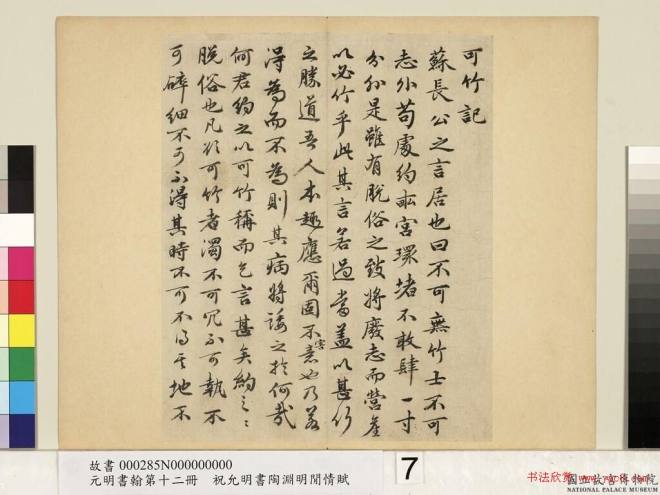 可竹記
蘇長公之言居也曰不可無竹士不可
志小苟處約畝宮環堵不敢肆一寸
分外是雖有脫俗之致將廢志而營產
以必竹乎此其言若過當蓋以甚竹
之勝道吾人本趣應爾固不害意也乃若
得為而不為則其病將諉之於何哉
何君約之以可竹稱而乞言甚矣約之之
脫俗也凡於可竹者濁不可冗不可執不
可碎細不可不得其時不可不得其地不
故書 000285N000000000
元明書翰第十二冊 祝允明書陶淵明閒情賦
7
书法欣赏
國立故宮博物院
NATIONAL PALACE MUSEUM